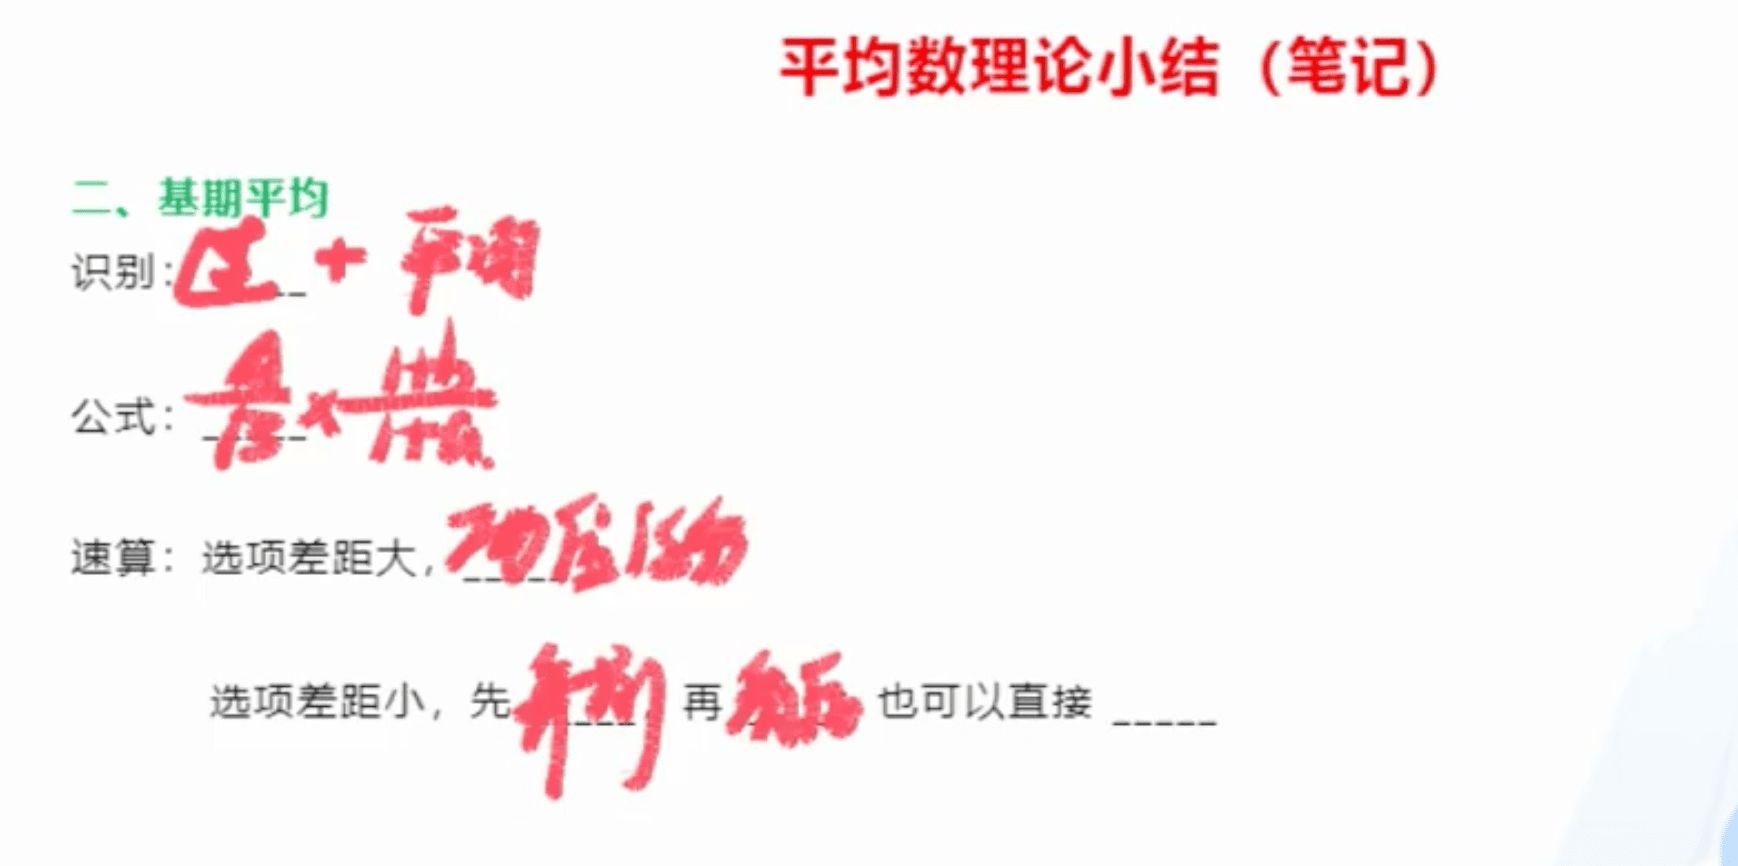 平均数理论小结（笔记）
二、基期平均
识别：过+平均
公式：A/B×(1+b)/(1+a)
速算：选项差距大，
选项差距小，先 _____，再 也可以直接 _____